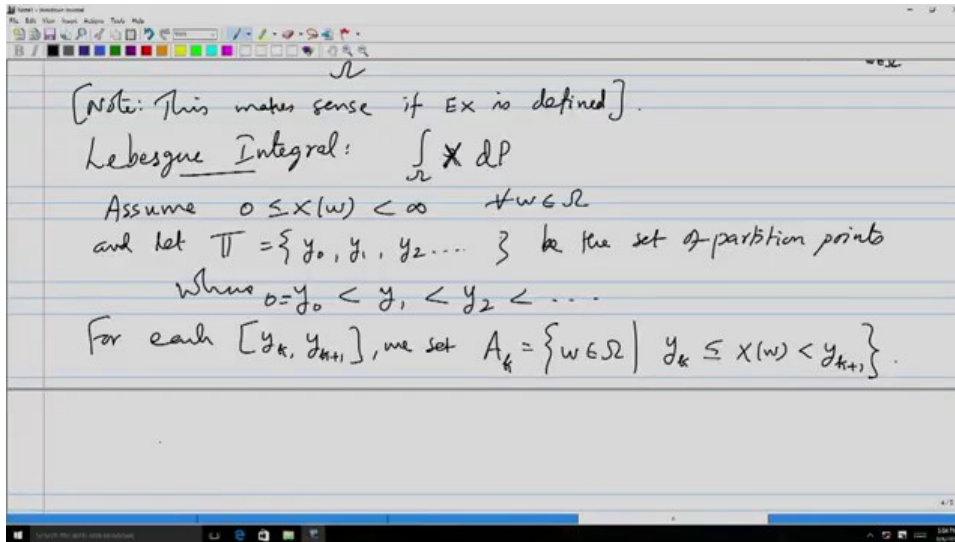 Ω
[Note: This makes sense if EX is defined].
Lebesgue Integral: ∫_Ω X dP
Assume 0 ≤ X(w) < ∞ ∀ w ∈ Ω
and let Π = {y₀, y₁, y₂ .... } be the set of partition points
where 0=y₀ < y₁ < y₂ < ....
For each [yₖ, yₖ₊₁], we set Aₖ = {w ∈ Ω | yₖ ≤ X(w) < yₖ₊₁}.